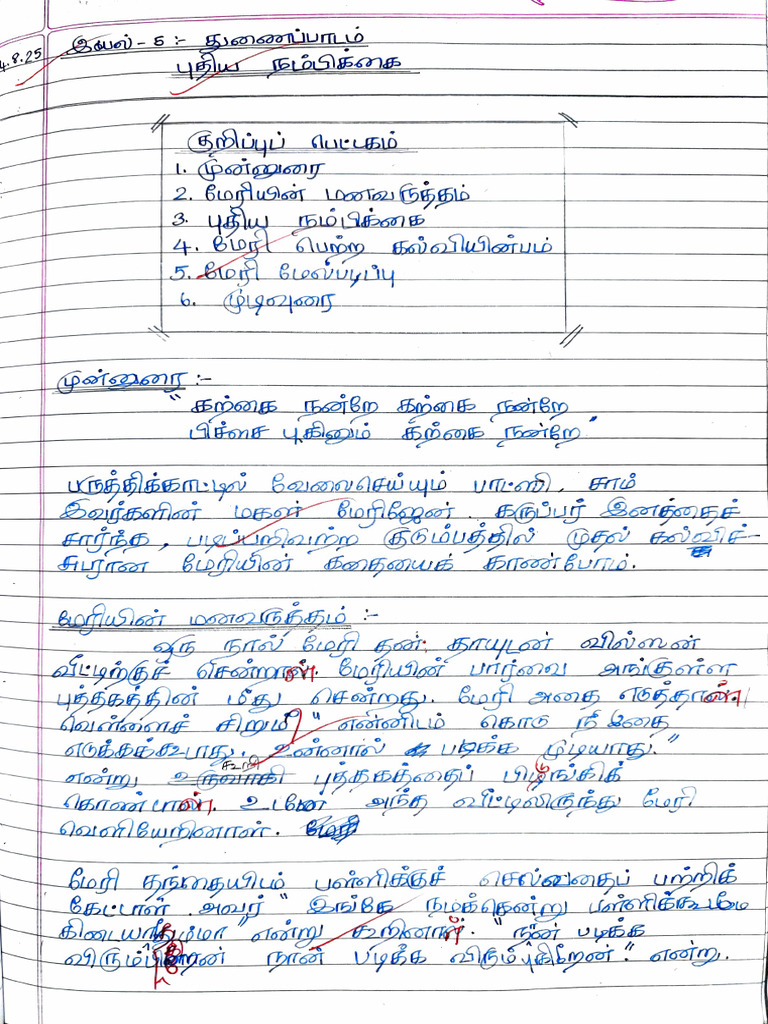 4.8.25
இயல் - 5 :- துணைப்பாடம்
புதிய நம்பிக்கை
குறிப்புப் பெட்டகம்
1. முன்னுரை
2. மேரியின் மனவருத்தம்
3. புதிய நம்பிக்கை
4. மேரி பெற்ற கல்வியின்பம்
5. மேரி மேல்படிப்பு
6. முடிவுரை
முன்னுரை :-
" கற்கை நன்றே கற்கை நன்றே
பிச்சை புகினும் கற்கை நன்றே "
பருத்திக்காட்டில் வேலைசெய்யும் பாட்ஸி, சாம்
இவர்களின் மகள் மேரிஜேன். கருப்பர் இனத்தைச்
சார்ந்த, படிப்பறிவற்ற குடும்பத்தில் முதல் கல்விச்-
சுடரான மேரியின் கதையைக் காண்போம்.
மேரியின் மனவருத்தம் :-
ஒரு நாள் மேரி தன் தாயுடன் வில்ஸன்
வீட்டிற்குச் சென்றாள். மேரியின் பார்வை அங்குள்ள
புத்தகத்தின் மீது சென்றது. மேரி அதை எடுத்தாள்.
வெள்ளைச் சிறுமி " என்னிடம் கொடு நீ இதை
எடுக்கக்கூடாது. உன்னால் படிக்க முடியாது."
என்று கூறி புத்தகத்தைப் பிடிங்கிக்
கொண்டாள். உடனே அந்த வீட்டிலிருந்து மேரி
வெளியேறினாள்.
மேரி தந்தையிடம் பள்ளிக்குச் செல்வதைப் பற்றிக்
கேட்டாள். அவர் " இங்கே நமக்கென்று பள்ளிக்கூடமே
கிடையாதம்மா" என்று கூறினார். "நான் படிக்க
விரும்புகிறேன் நான் படிக்க விரும்புகிறேன்." என்று.